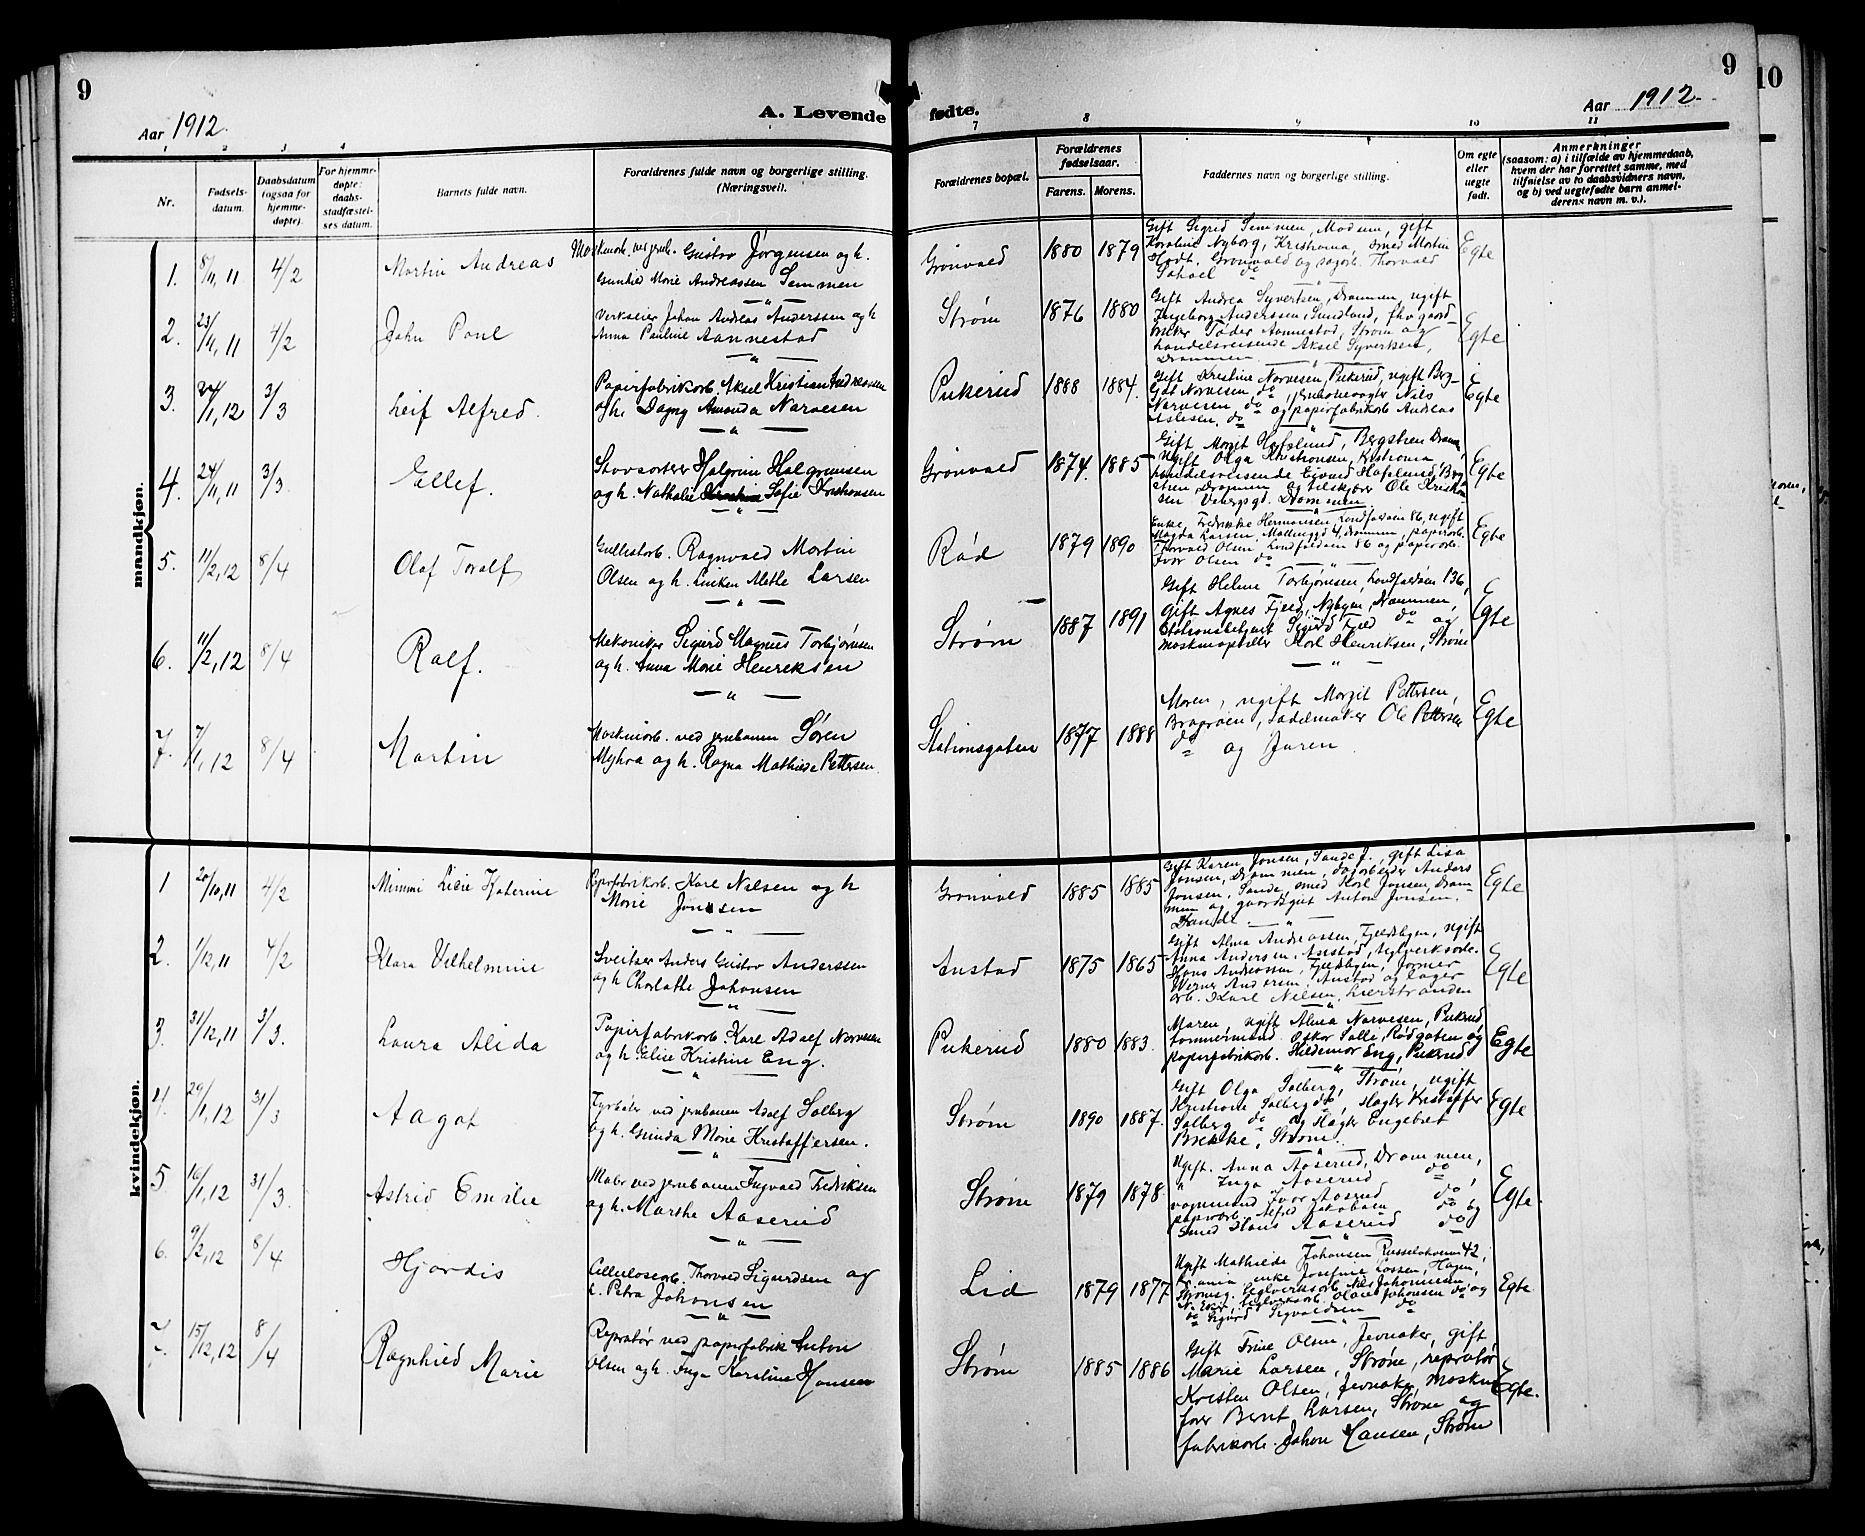 9
9
10
Aar 1912.
A. Levende fødte.
Aar 1912.
1 2 3 4 7 8 9 10 11
Nr.
Fødsels-
datum.
Daabsdatum
(ogsaa for
hjemme-
døpte).
For hjemme-
døpte:
daabs-
stadfæstel-
ses datum.
Barnets fulde navn.
Forældrenes fulde navn og borgerlige stilling.
(Næringsvei).
Forældrenes bopæl.
Forældrenes
fødselsaar.
Farens. Morens.
Faddernes navn og borgerlige stilling.
Om egte
eller
uegte
født.
Anmerkninger
(saasom: a) i tilfælde av hjemmedaab,
hvem der har forrettet samme, med
tilføielse av to daabsvidners navn,
og b) ved uegtefødte barn anmel-
derens navn m. v.).
mandkjøn.
1. 8/11, 11 4/2 Martin Andreas
Gustav Jørgensen og h.
Gunhild Marie Andreassen Semmen
Grønvold 1880 1879
Gift Sigrid Semmen, Modum, gift
Karoline Nyborg, Kristiania, smed Martin
Grønvold og Thorvald
do
Egte
2. 23/11, 11 4/2 John Paul
Johan Andreas Anderssen og h
Anna Pauline Aannestad
Strøm 1876 1880
Gift Andrea Syvertsen, Drammen, ugift
Ingeborg Anderssen, Sundland, fhv gaard-
bruker Peder Aannestad, Strøm og
handelsreisende Aksel Syvertsen,
Drammen.
Egte
3. 24/1, 12 3/3 Leif Alfred.
Papirfabrikarb. Aksel Kristian Andreassen
og h. Dagny Amanda Narvesen
Pukerud 1888 1884.
Gift Kristine Narvesen, Pukerud, ugift Berg-
Narvesen, do, Nils
Narvesen do og papirfabrikarb Andreas
Aslesen, do
Egte
4. 24/11, 11 3/3 Ellef.
Halgrim Halgrimsen
og h. Nathalie Sofie Kristiansen
Grønvold 1874. 1885
Gift Margit Hafslund, Bergstien Dramn,
ugift Olga Kristiansen, Kristiania,
handelsreisende Eivind Hafslund, Berg-
stien, Drammen og tilskjærer Ole Kristian-
sen Drammen
Egte
5. 11/2, 12 8/4 Olaf Toralf
Ragnvald Martin
Olsen og h. Linken Alethe Larsen
Rød 1879 1890
Enke Fredrikke Hermansen 86, ugift
Magda Larsen, Drammen, papirarb.
Thorvald Olsen, 86 og papirarb.
Ivar Olsen do
Egte
6. 11/2, 12 8/4 Ralf.
Mekaniker Sigurd Magnus Torbjørnsen
og h. Anna Marie Henriksen
Strøm 1887 1891
Gift Helene Torbjørnsen, 136,
Gift Agnes Fjeld, Nybyen, Drammen,
Stationsbetjent Sigurd Fjeld do og
maskinopstiller Karl Henriksen, Strøm
Egte
7. 7/1, 12 8/4 Martin
Maskinarb. ved jernbanen Søren
Myhra og h. Ragna Mathilde Pettersen
Stationsgaten 1877 1888
Moren, ugift Margit Pettersen,
Bragerøen, Sadelmaker Ole Pettersen
do og faren.
Egte
kvindekjøn.
1 20/10, 11 4/2 Mimmi Lilie Katerine
Papirfabrikarb. Karl Nilsen og h
Marie Jonsen
Grønvold 1885 1885
Gift Karen Jonsen, Sande J., gift Lisa
Jonsen, Drammen, dagarbeider Anders
Jonsen, Sande, smed Karl Jonsen, Dram-
men og gaardsgut Anton Jonsen.
Sande.
Egte
2. 1/12, 11 4/2 Klara Vilhelmine
Sveitser Anders Gustav Anderssen
og h Charlotte Johansen
Austad 1875 1865
Gift Alma Andreassen, Fjeldbyen, ugift
Anna Andersen, Austad, teglverksarb.
Hans Andreassen, Fjeldbyen, former
Werner Andersen, Austad og lager
arb. Karl Nilsen, Lierstranden
Egte
3. 31/12, 11 3/3. Laura Alida
Papirfabrikarb. Karl Adolf Narvesen
og h. Eline Kristine Eng.
Pukerud 1880 1883.
Moren, ugift Alma Narvesen, Pukrud
tømmermand Oskar Solli, Rødgaten og
papirfabrikarb. Hildemar Eng, Pukrud
Egte
4. 29/1, 12 31/3 Aagot
Fyrbøter ved jernbanen Adolf Solberg
og h. Gunda Marie Kristoffersen.
Strøm 1890 1887.
Gift Olga Solberg, Strøm, ugift
Kristiane Solberg do, Kristoffer
Solberg do og Engebret
Brekke, Strøm.
Egte
5 16/1, 12 31/3. Astrid Emilie
Maler ved jernbanen Ingvald Fredriksen
og h. Marthe Aaserud
Strøm 1879 1878.
Ugift. Anna Aaserud, Drammen,
" Inga Aaserud do,
vognmand Ivar Aaserud do,
papirarb. Alfred Jakobsen do og
Smed Hans Aaserud do
Egte
6. 9/2, 12 8/4 Hjørdis
Cellulosearb. Thorvald Sigurdsen og
h. Petra Johansen
Lid 1879 1877
Ugift Mathilde Johansen 42,
Kr.ania, enke Josefine Larsen, Hagen,
Teglverksarb. Nils Johannesen,
N. Eker, teglverksarb. Johansen do og
do Sigurd Sigvaldsen do
Egte
7. 15/12, 12 8/4 Ragnhild Marie
Reperatør ved papirfabrik Anton
Olsen og h. Inga Karoline Hansen
Strøm 1885 1886
Gift Trine Olsen, Jevnaker, gift
Marie Larsen, Strøm, repratør
Kristen Olsen, Jevnaker, maskin
fører Bernt Larsen, Strøm og
fabrikarb. Johan Hansen, Strøm
Egte.